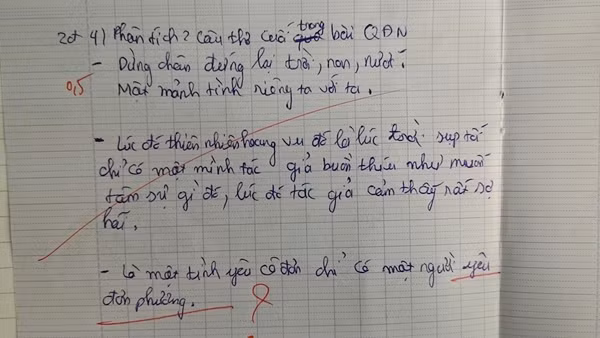 2đ 4) Phân tích 2 câu thơ cuối trong bài QĐN
0,5
- Dừng chân đứng lại trời, non, nước.
Một mảnh tình riêng ta với ta.
- Lúc đó thiên nhiên hoang vu đó là lúc trời sụp tối
chỉ có một mình tác giả buồn thiu như muốn
tâm sự gì đó, lúc đó tác giả cảm thấy rất sợ
hãi.
- Là một tình yêu cô đơn chỉ có một người yêu
đơn phương.